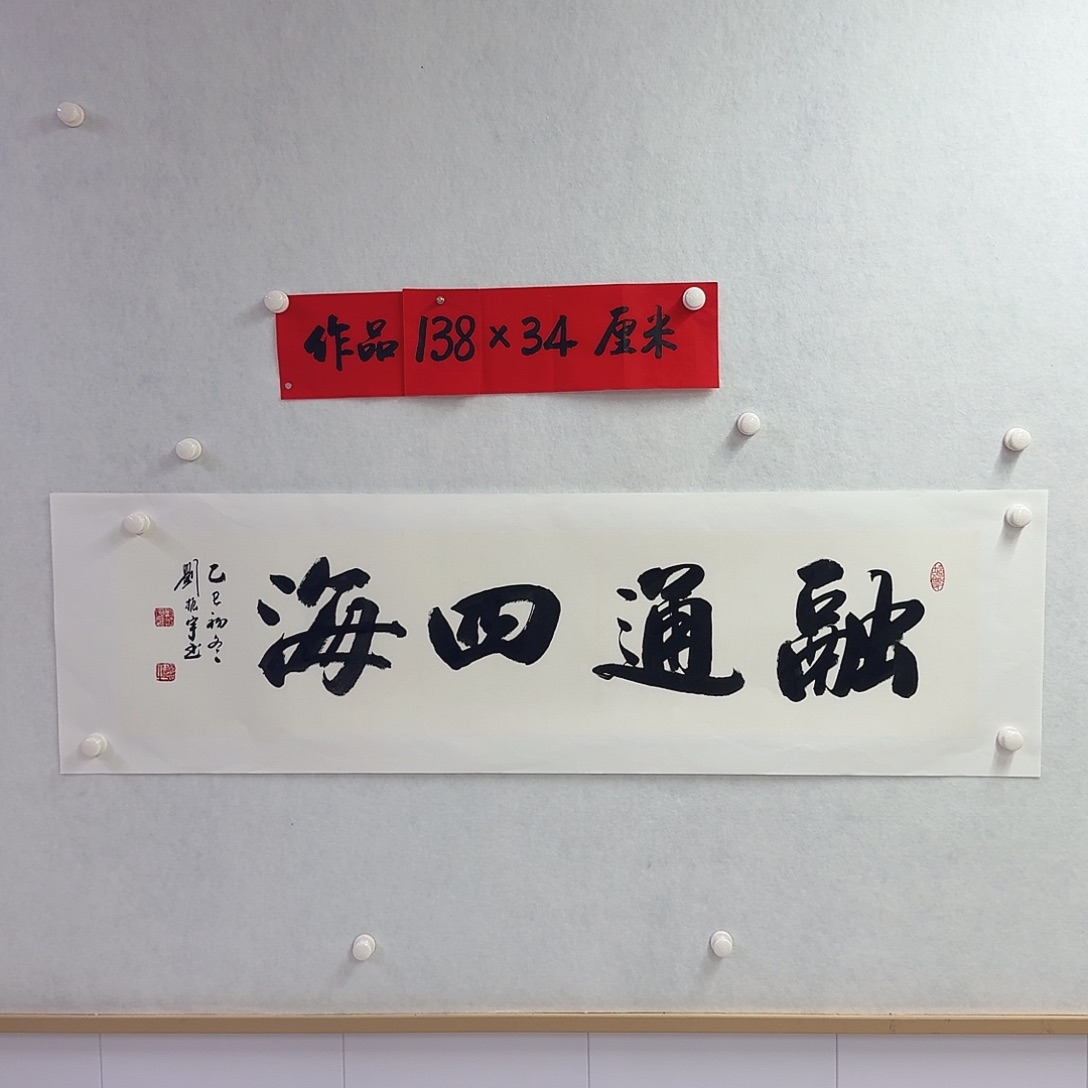 作品138×34厘米
融通四海
乙巳初冬
劉振宇书